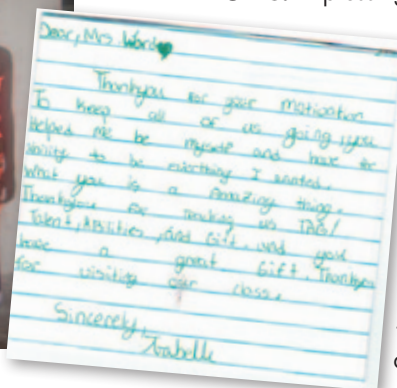 Dear, Mrs. Ward
Thankyou for your motivation
To keep all of us going, you
Helped me be myself and have the
Ability to be everything I wanted.
What you is a Amazing thing.
Thankyou for making us TAG/
Talent, Abilities, And Gift, and you
have a great Gift. Thankyou
for visiting our class.
Sincerely,
Arabelle